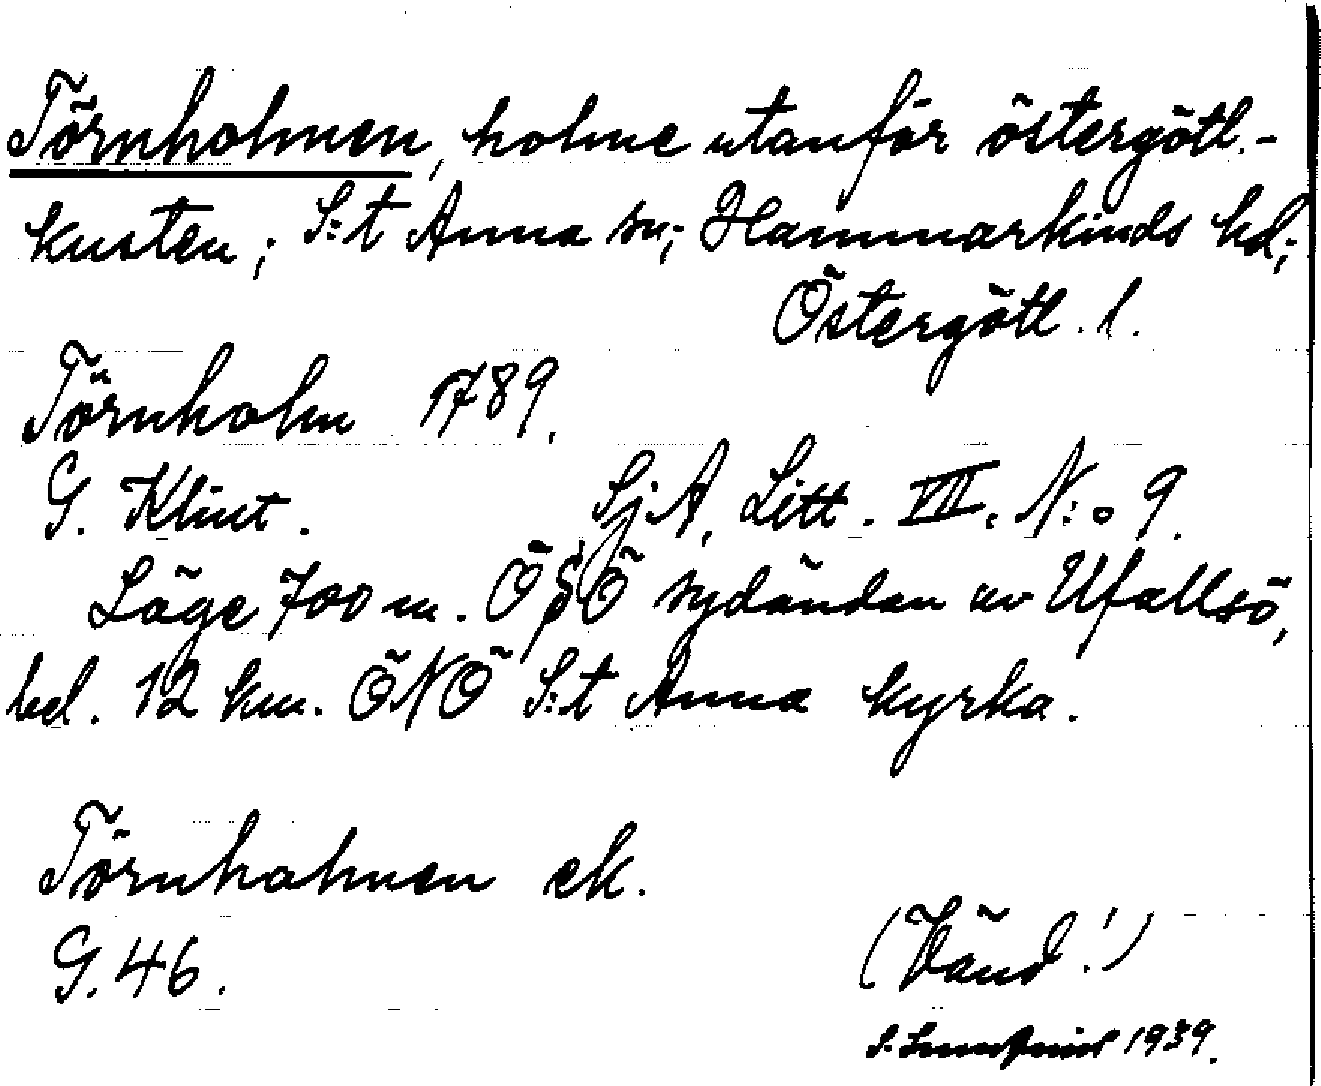 Törnholmen, holme utanför östergötl.-
kusten; S:t Anna sn; Hammarkinds hd;
Östergötl. l.
Törnholm 1789.
G. Klint. SjA, Litt. VIII. N:o 9.
Läge 700 m. ÖSÖ sydändan av Ufallsö,
bel. 12 km. ÖNÖ S:t Anna kyrka.
Törnholmen ek.
G. 46.
(Vänd!)
S. 1939.